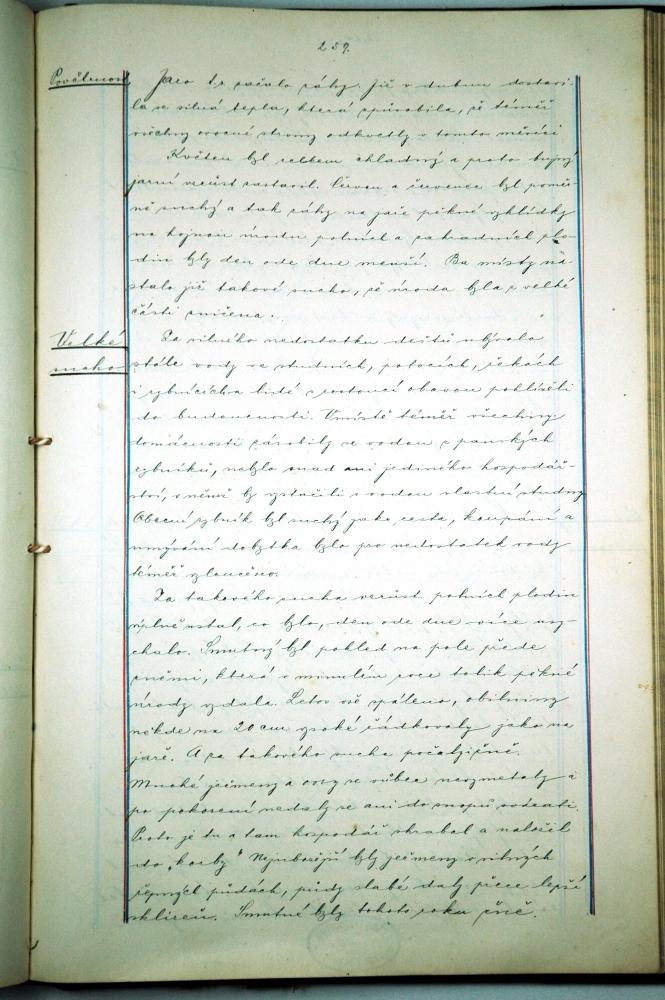 259.
Povětrnost. Jaro t.r. začalo záhy. Již v dubnu dostavi-
la se silná tepla, která způsobila, že téměř
všechny ovocné stromy odkvetly v tomto měsíci
Květen byl celkem chladný a proto bujný
jarní vzrůst zastavil. Červen a červenec byl poměr-
ně suchý a tak záhy na jaře pěkné vyhlídky
na hojnou úrodu polních a zahradních plo-
din byly den ode dne menší. Ba místy na-
stalo již takové sucho, že úroda byla z velké
části zničena.
Velké Za silného nedostatku dešťů ubývalo
sucho stále vody ve studních, potocích, řekách
i rybnících a lidé s rostoucí obavou pohlíželi
do budoucnosti. V místě téměř všechny
domácnosti zásobily se vodou z panských
rybníků, nebylo snad ani jediného hospodář-
ství, v němž by vystačili s vodou vlastní studny
Obecní rybník byl suchý jako cesta, koupání a
umývání dobytka bylo pro nedostatek vody
téměř vyloučeno.
Za takového sucha vzrůst polních plodin
úplně ustal, co bylo, den ode dne více usy-
chalo. Smutný byl pohled na pole přede
žněmi, která v minulém roce tolik pěkné
úrody vydala. Letos vše spáleno, obilniny
někde na 20 cm vysoké řádkovaly jako na
jaře. A za takového sucha počaly žně.
Mnohé ječmeny a ovsy se vůbec nevymetaly a
po pokosení nedaly se ani do snopů svázati.
Proto je tu a tam hospodář shrabal a naložil
do „korby" Nejubožejší byly ječmeny v silných
řepných půdách, půdy slabé daly přece lepší
sklizeň. Smutné byly tohoto roku žně.